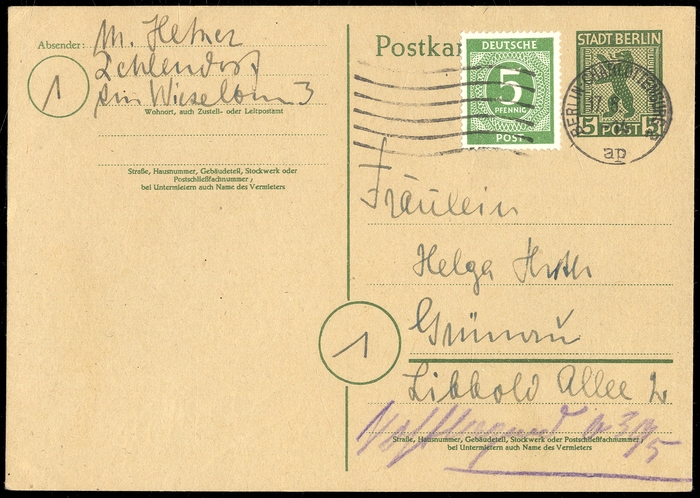 Absender: M. Hetner
Zehlendorf
1
Wohnort, auch Zustell- oder Leitpostamt
Straße, Hausnummer, Gebäudeteil, Stockwerk oder
Postschließfachnummer;
bei Untermietern auch Name des Vermieters
Postkar
DEUTSCHE
5
PFENNIG
POST
STADT BERLIN
5 POST 5
BERLIN-CHARLOTTENBURG
ap
Fräulein
Helga
Grünau
1
Libbold Allee
Straße, Hausnummer, Gebäudeteil, Stockwerk oder Postschließfachnummer;
bei Untermietern auch Name des Vermieters